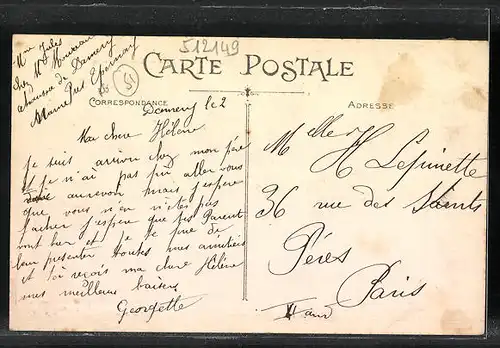 Mme Jules
chez Mr Moreau
de Damery
Marne près Epernay
512149
51
CARTE POSTALE
CORRESPONDANCE
ADRESSE
Damery le 2
Ma chère Hélène
Je suis arrivée chez mon père
et je n'ai pas pu aller vous
dire aurevoir mais j'espère
que vous n'en n'êtes pas
fachée j'espère que tes Parent
vont bien et je te prie de
leur présenter toutes mes amitiées
et toi reçois ma chère Hélène
mes meilleurs baisers
Georgette
Melle H Lepinette
36 rue des Saints
Pères
Paris